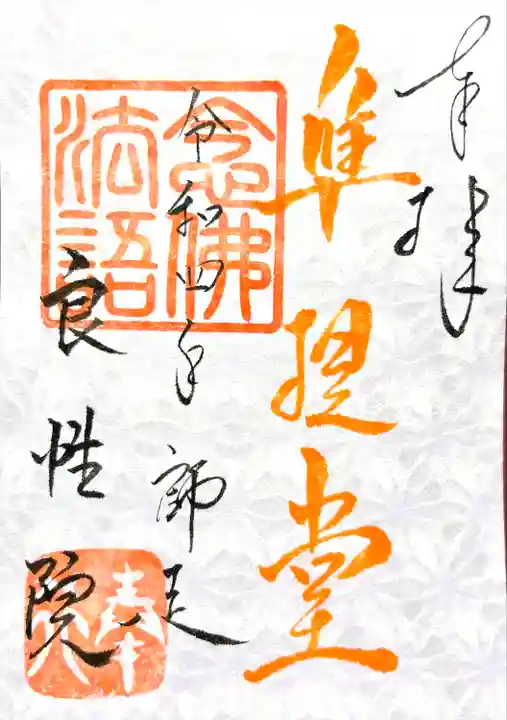 奉拝
隼提堂
令和四年 師走
良性院
念佛法語